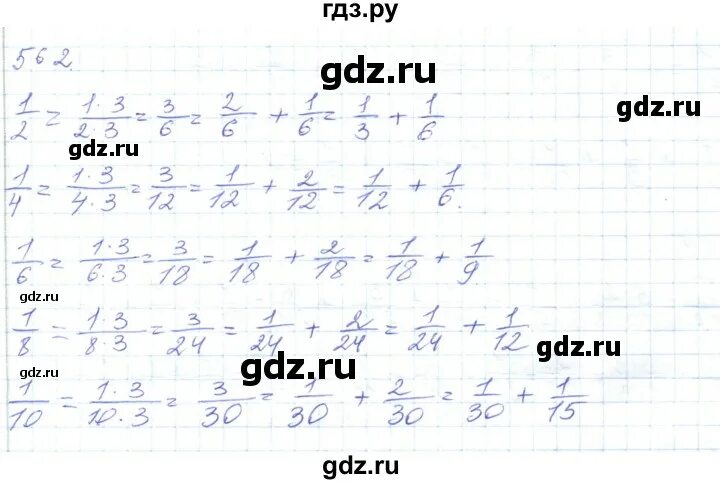 гдз.ру
562
gdz.ru
gdz.ru
1/2 = 1·3/2·3 = 3/6 = 2/6 + 1/6 = 1/3 + 1/6
gdz.ru
1/4 = 1·3/4·3 = 3/12 = 1/12 + 2/12 = 1/12 + 1/6.
gdz.ru
1/6 = 1·3/6·3 = 3/18 = 1/18 + 2/18 = 1/18 + 1/9.
gdz.ru
1/8 = 1·3/8·3 = 3/24 = 1/24 + 2/24 = 1/24 + 1/12
gdz.ru
gdz.ru
gdz.ru
1/10 = 1·3/10·3 = 3/30 = 1/30 + 2/30 = 1/30 + 1/15
gdz.ru
gdz.ru